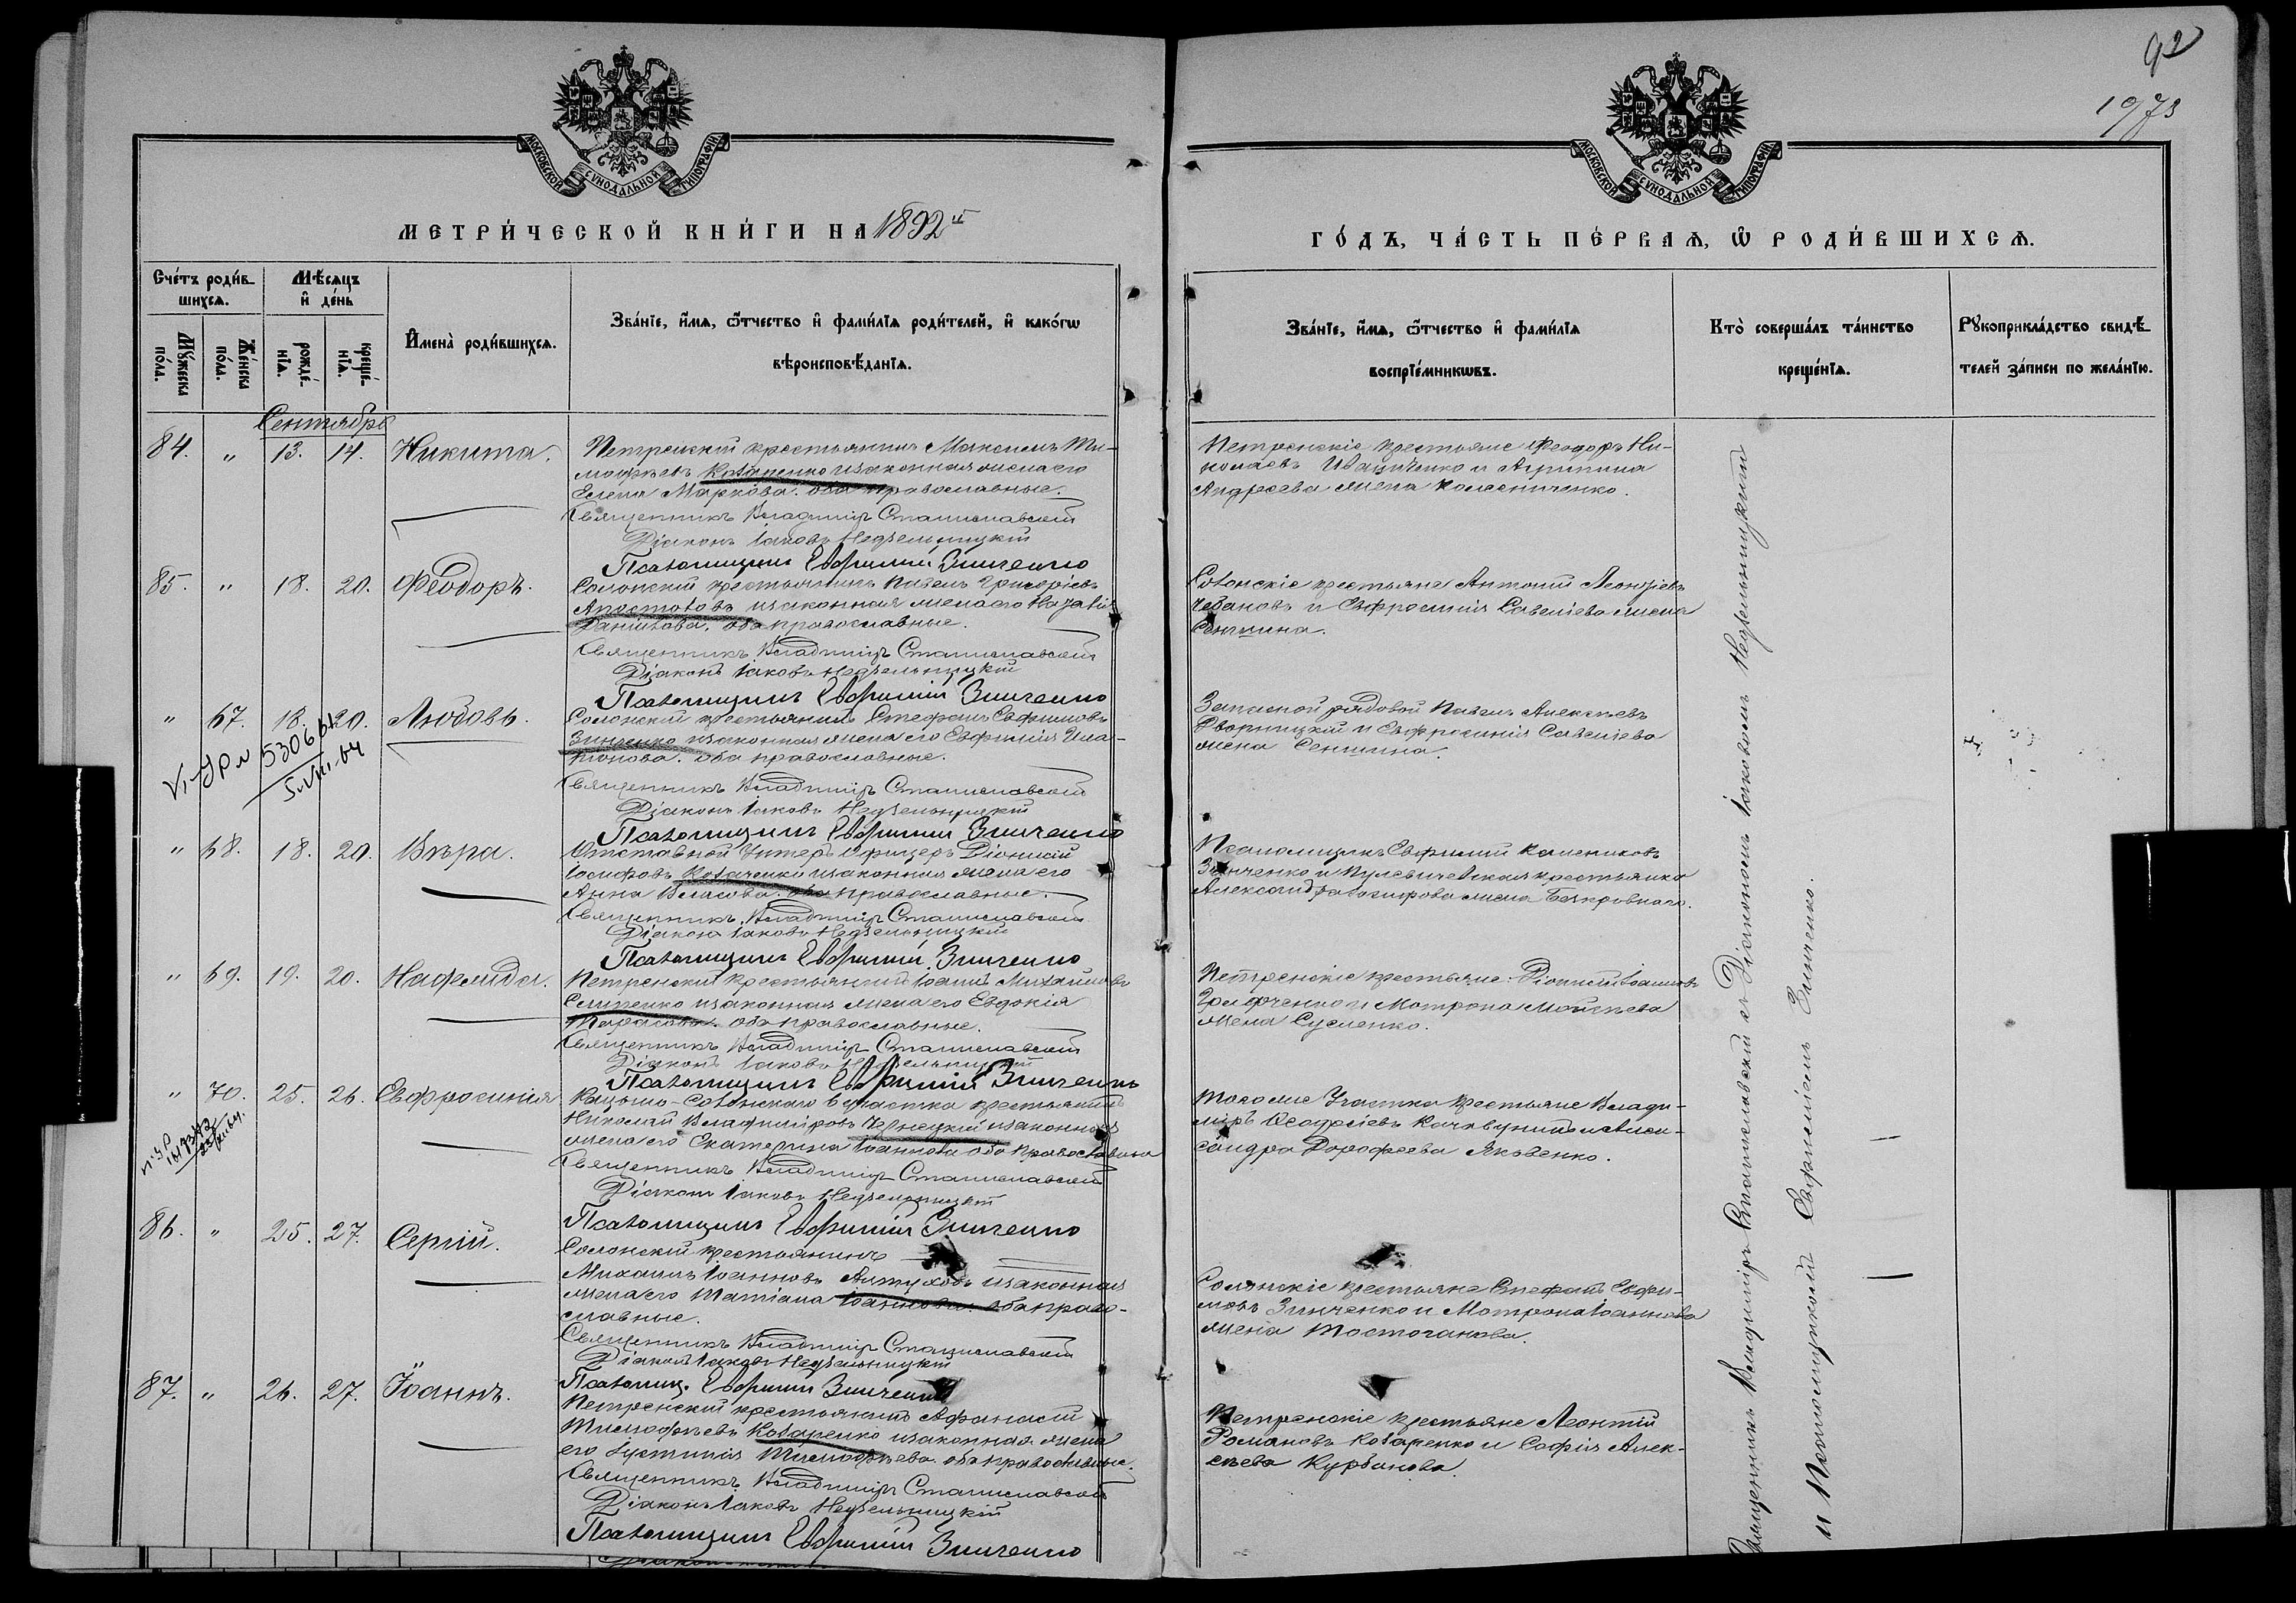 92
1973
МОСКОВСКОЙ СѴНОДАЛЬНОЙ ТИПОГРАФІИ
МОСКОВСКОЙ СѴНОДАЛЬНОЙ ТИПОГРАФІИ
МЕТРИ́ЧЕСКОЙ КНИ́ГИ НА 1892й
ГО́ДЪ, ЧА́СТЬ ПЕ́РВАѦ, Ѡ РОДИ́ВШИХСѦ.
Сче́тъ роди́в-
шихсѧ.
Мѣ́сѧцъ
и҆ де́нь
Мꙋ́жеска
по́ла.
Же́нска
по́ла.
рожде́-
нїѧ.
креще́-
нїѧ.
И҆мена̀ роди́вшихсѧ.
Зва́нїе, и҆́мѧ, ѻ҆́тчество и҆ фами́лїѧ роди́телей, и҆ како́гѡ
вѣроисповѣ́данїѧ.
Зва́нїе, и҆́мѧ, ѻ҆́тчество и҆ фами́лїѧ
воспрїе́мникѡвъ.
Кто̀ соверша́лъ та́инство
креще́нїѧ.
Рꙋкоприкла́дство свидѣ́-
телей за́писи по жела́нїю.
Сентябрь
84. " 13. 14. Никита.
Петренскій крестьянинъ Максимъ Ти-
мофѣевъ Козаренко и законная жена его
Елена Маркова. оба православные.
Священникъ Владиміръ Станиславскій
Діаконъ Іаковъ Недзельницкій
Псаломщикъ Евфимій Зинченко
Петренскіе крестьяне Феодоръ Ни-
колаевъ Иващенко и Агрипина
Андреева жена Колесниченко.
85. " 18. 20. Феодоръ.
Солонскій крестьянинъ Павелъ Григоріевъ
Апостоловъ и законная жена его Наталія
Даніилова. оба православные.
Священникъ Владиміръ Станиславскій
Діаконъ Іаковъ Недзельницкій
Псаломщикъ Евфимій Зинченко
Солонскіе крестьяне Антоній Леонтіевъ
Чебановъ и Евфросинія Савеліева жена
Сенчина.
" 67. 18. 20. Любовь.
Солонскій крестьянинъ Стефанъ Евфимовъ
Зинченко и законная жена его Евфимія Ила-
ріонова. оба православные.
Священникъ Владиміръ Станиславскій
Діаконъ Іаковъ Недзельницкій
Псаломщикъ Евфимій Зинченко
Запасной рядовой Павелъ Алексѣевъ
Дворницкій и Евфросинія Савеліева
жена Сенчина.
" 68. 18. 20. Вѣра.
Отставной Унтеръ Офицеръ Діонисій
Іосифовъ Козаченко и законная жена его
Анна Власова. оба православные.
Священникъ Владиміръ Станиславскій
Діаконъ Іаковъ Недзельницкій
Псаломщикъ Евфимій Зинченко
Псаломщикъ Евфимій
Зинченко и крестьянка
Александра Іосифова жена
" 69. 19. 20.
Петренскій крестьянинъ Іоаннъ Михайловъ
Слипенко и законная жена его Евдокія
Тарасова. оба православные.
Священникъ Владиміръ Станиславскій
Діаконъ Іаковъ Недзельницкій
Псаломщикъ Евфимій Зинченко
Петренскіе крестьяне Діонисій Іоанновъ
и Матрона Моисѣева
жена Сусленко.
" 70. 25. 26. Евфросинія
участка крестьянинъ
Николай Владиміровъ Чернецкій и законная
жена его Екатерина Іоаннова оба православны
Священникъ Владиміръ Станиславскій
Діаконъ Іаковъ Недзельницкій
Псаломщикъ Евфимій Зинченко
Того же Участка крестьяне Влади-
міръ и Алек-
сандра Дорофеева Яковенко.
86. " 25. 27. Сергій.
Солонскій крестьянинъ
Михаилъ Іоанновъ Алтуховъ и законная
жена его Татіана Іоаннова. оба право-
славные.
Священникъ Владиміръ Станиславскій
Діаконъ Іаковъ Недзельницкій
Псаломщ. Евфимій Зинченко
Солонскіе крестьяне Стефанъ Евфи-
мовъ Зинченко и Матрона Іоаннова
жена Толстоганова.
87. " 26. 27. Іоаннъ.
Петренскій крестьянинъ Афанасій
Тимофѣевъ Козаренко и законная жена
его Іустинія Тимофѣева. оба православные.
Священникъ Владиміръ Станиславскій
Діаконъ Іаковъ Недзельницкій
Псаломщикъ Евфимій Зинченко
Петренскіе крестьяне Леонтій
Романовъ Козаренко и Софія Алек-
сѣева Курбанова.
Священникъ Владиміръ Станиславскій съ Діакономъ Іаковомъ Недзельницкимъ
и Псаломщикомъ Евфиміемъ Зинченко.